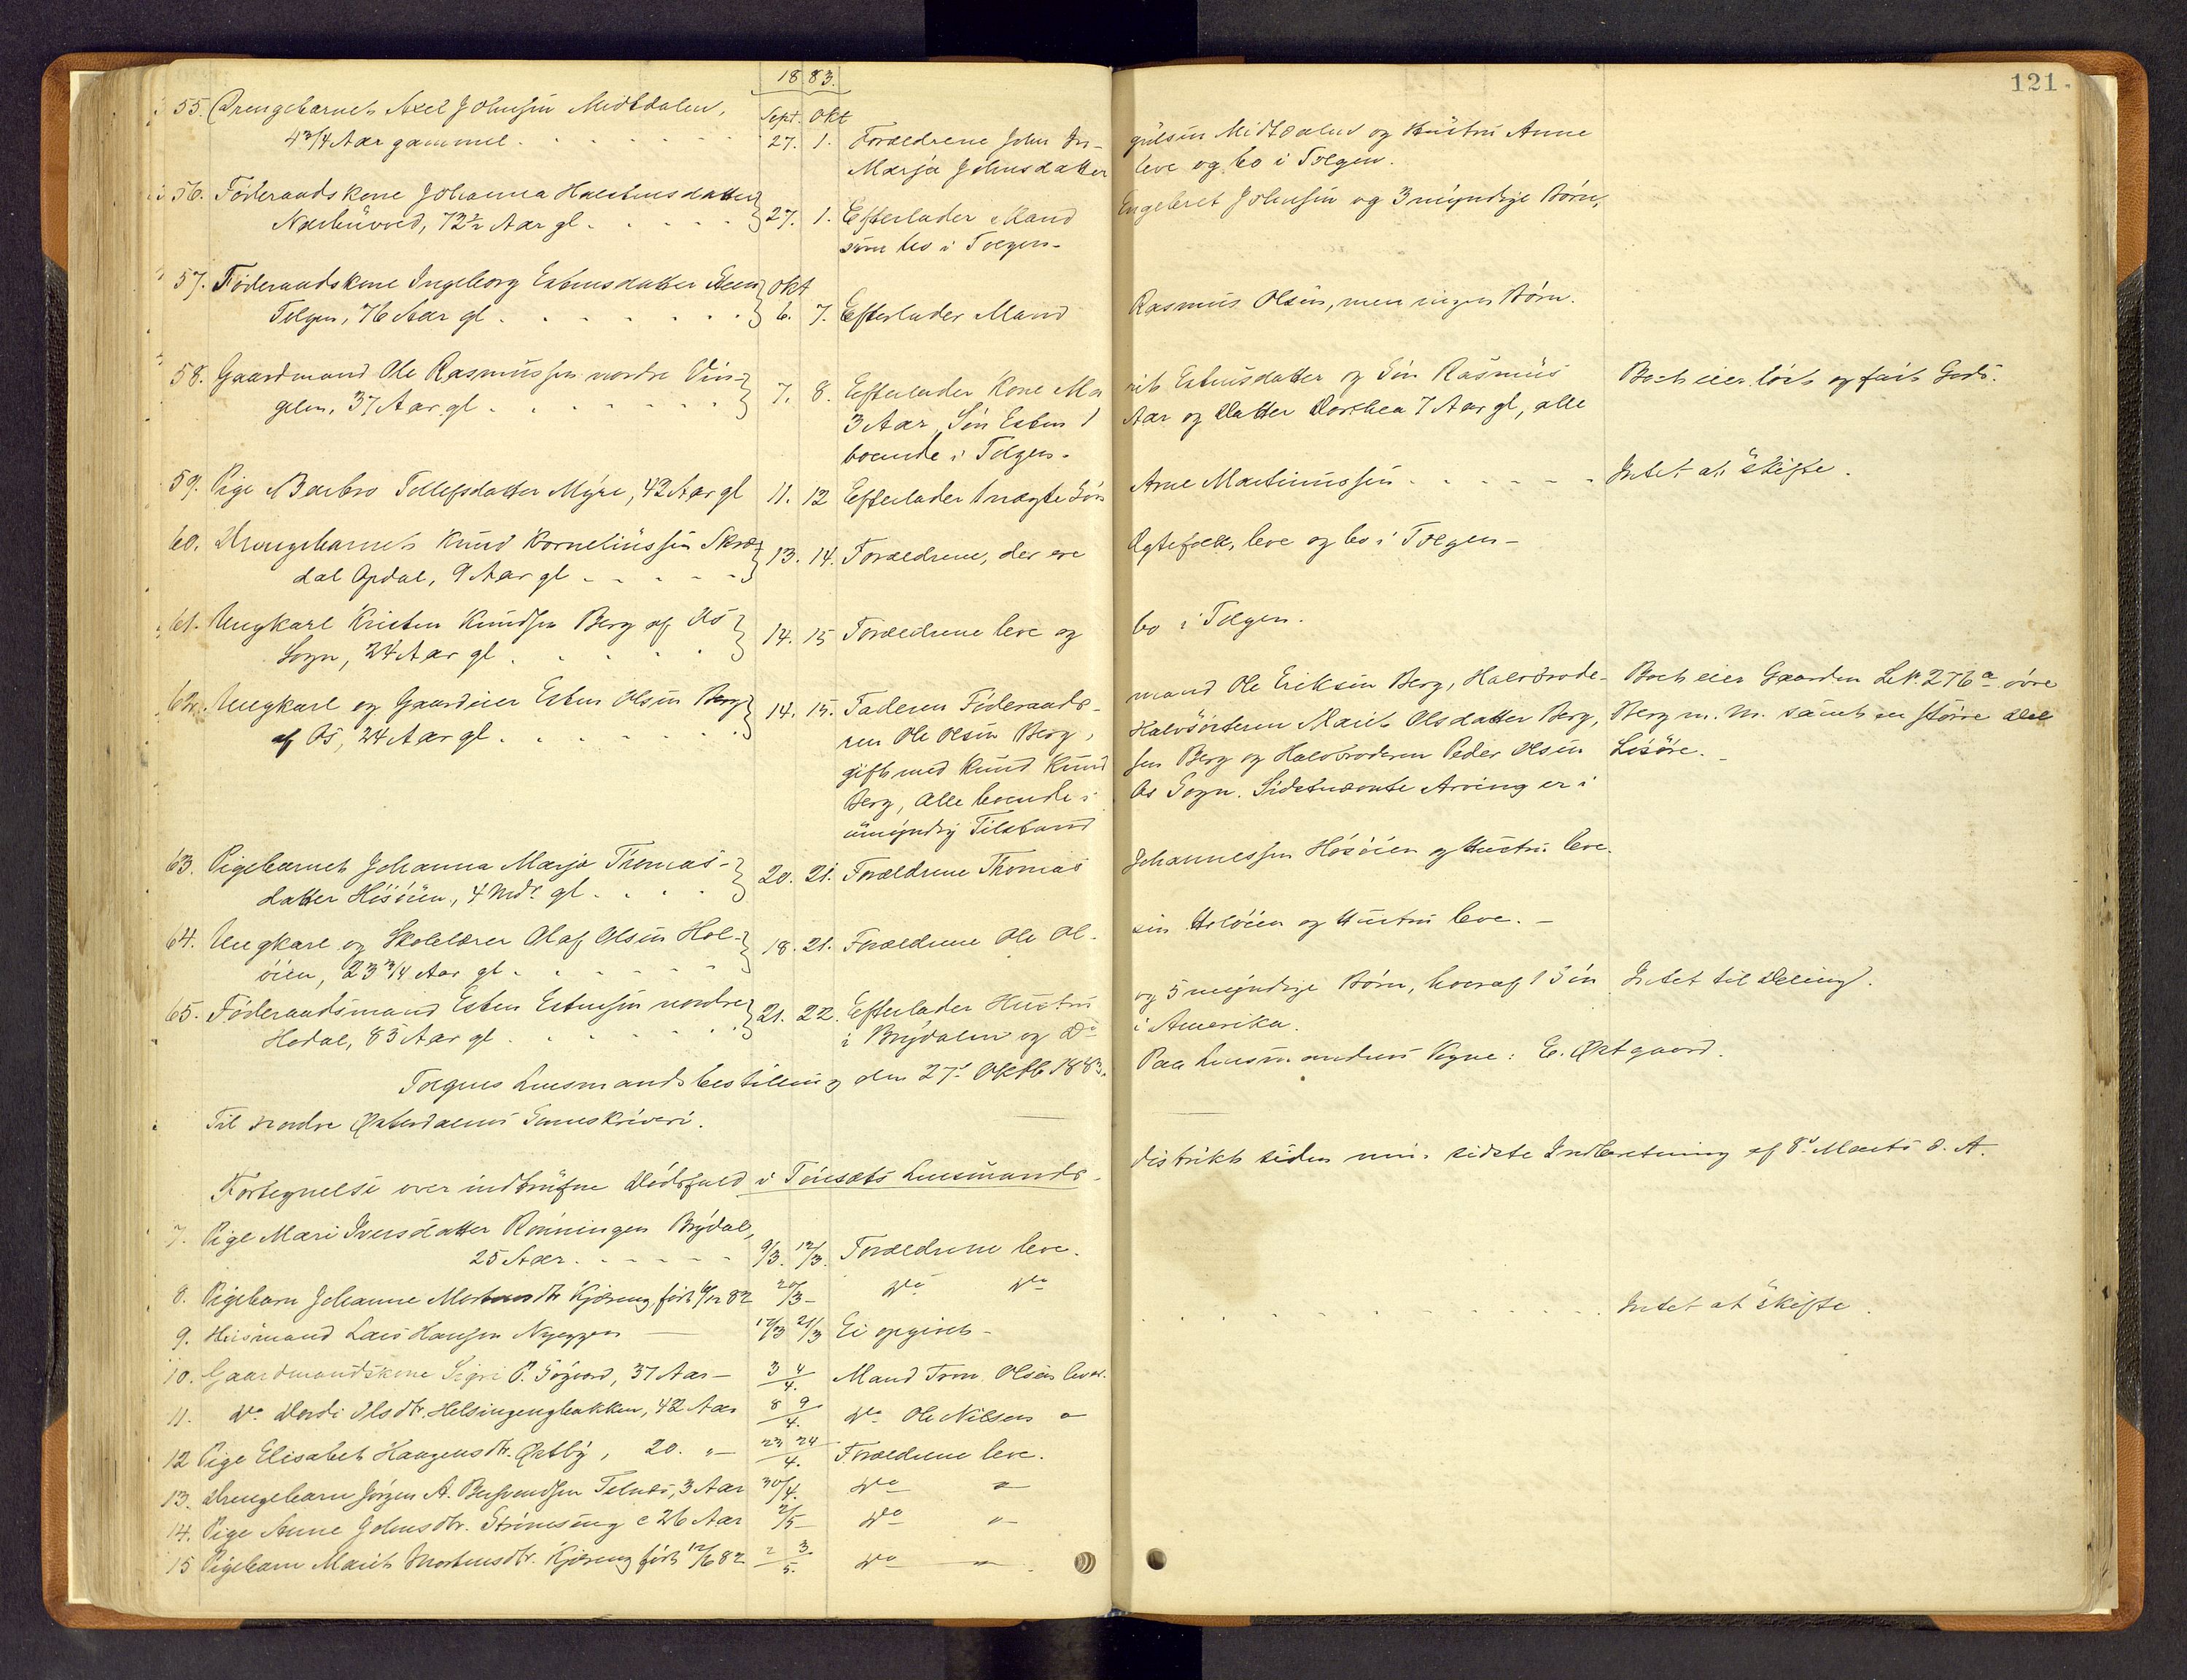 121.
1883.
Sept. Okt
55. Drengebarnet Axel Johnsen Midtdalen,
4 3/4 Aar gammel. 27. 1. Forældrene John In- gulsen Midtdalen og Hustru Anne
Marja Johnsdatter leve og bo i Tolgen.
56. Føderaadskone Johanna Halstensdatter
72½ Aar gl. 27. 1. Efterlader Mand Engebret Johnsen og 3 myndige Børn,
som bo i Tolgen.
57. Føderaadskone Ingeborg Estensdatter Okt
Tolgen, 76 Aar gl. 6. 7. Efterlader Mand Rasmus Olsen, men ingen Børn.
58. Gaardmand Ole Rasmussen nordre Vin-
gelen, 37 Aar gl. 7. 8. Efterlader Kone Ma- rit Estensdatter og Søn Rasmus Boet eier løst og fast Gods.
3 Aar, Søn Esten 1 Aar og Datter Dorthea 7 Aar gl, alle
boende i Tolgen.
59. Pige Barbro Tollefsdatter Myre, 42 Aar gl 11. 12 Efterlader 1 uægte Søn Arne Martinussen. Intet at skifte.
60. Drengebarnet Knud Korneliussen Skræ-
dal Opdal, 9 Aar gl 13. 14. Forældrene, der ere Ægtefolk, leve og bo i Tolgen-
61. Ungkarl Kristen Knudsen Berg af Os
Sogn, 24 Aar gl. 14. 15 Forældrene leve og bo i Tolgen.
62. Ungkarl og Gaardeier Esten Olsen Berg
af Os, 24 Aar gl. 14. 15. Faderen Føderaads- mand Ole Eriksen Berg, Halvbrode- Boet eier Gaarden L.N. 276a øvre
ren Ole Olsen Berg, Halvsøsteren Marit Olsdatter Berg, Berg m. m. samt en større Del
gift med Knud Knud- sen Berg og Halvbroderen Peder Olsen Løsøre.
Berg, alle boende i Os Sogn. Sidstnævnte Arving er i
umyndig Tilstand
63. Pigebarnet Johanna Marja Thomas-
datter Høsøien, 4 Mdr. gl. 20. 21. Forældrene Thomas Johannessen Høsøien og Hustru leve.
64. Ungkarl og Skolelærer Olaf Olsen Hol-
øien, 23 3/4 Aar gl. 18. 21. Forældrene Ole Ol- sen Holøien og Hustru leve. -
65. Føderaadsmand Esten Estensen nordre
Hodal, 83 Aar gl. 21. 22. Efterlader Hustru og 5 myndige Børn, hvoraf 1 Søn Intet til Deling.
i Brydalen og Do i Amerika.
Tolgens Lensmandsbestilling den 27. Oktb 1883. Paa Lensmandens Vegne: E. Østgaard.
Til nordre Østerdalens Sorenskriveri.
Fortegnelse over indtrufne Dødsfald i Tønsets Lensmands- distrikt siden min sidste Indberetning af 8. Marts d. A.
7. Pige Mari Iversdatter Rønningen Brydal,
25 Aar. 9/3. 12/3. Forældrene leve.
8. Pigebarn Johanne Mortensdtr Kjøreng, født 6/12 82 20/3 - Do Do
9. Husmand Lars Hansen Nyeggen 12/3 21/3 Ei opgivet - Intet at skifte.
10. Gaardmandskone Sigri P. 37 Aar - 3 4/4. Mand Tron Olsen lever.
11. Do Dordi Olsdtr. Helsingengbakken, 42 Aar 8 9/4. Do Ole Nilsen "
12 Pige Elisabet Haagensdtr. Østby, 20. "- 23 24/4. Forældrene leve.
13. Drengebarn Jørgen A. Telnes, 3 Aar 30/4. Do "
14. Pige Anne Johnsdtr. Strømseng c 26 Aar 2/5 - Do "
15 Pigebarn Marit Mortensdtr. Kjøreng født 12/6 82 2 3/5. Do "